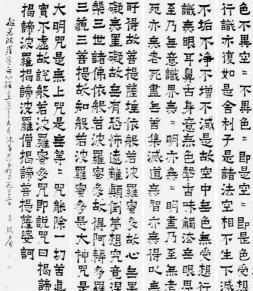 色不異空〻不異色〻即是空〻即是色受想
行識亦復如是舍利子是諸法空相不生不滅
不垢不淨不增不減是故空中無色無受想行
識無眼耳鼻舌身意無色聲香味觸法無眼界
乃至無意識界無〻明亦無〻明盡乃至無老
死亦無老死盡無苦集滅道無智亦無得以無
所得故菩提薩埵依般若波羅蜜多故心無罣
礙無罣礙故無有恐怖遠離顛倒夢想究竟涅
槃三世諸佛依般若波羅蜜多故得阿耨多羅
三藐三菩提故知般若波羅蜜多是大神咒是
大明咒是無上咒是無等〻咒能除一切苦真
實不虛故說般若波羅蜜多咒即說咒曰揭諦
揭諦波羅揭諦波羅僧揭諦菩提薩婆訶
般若波羅蜜多心經